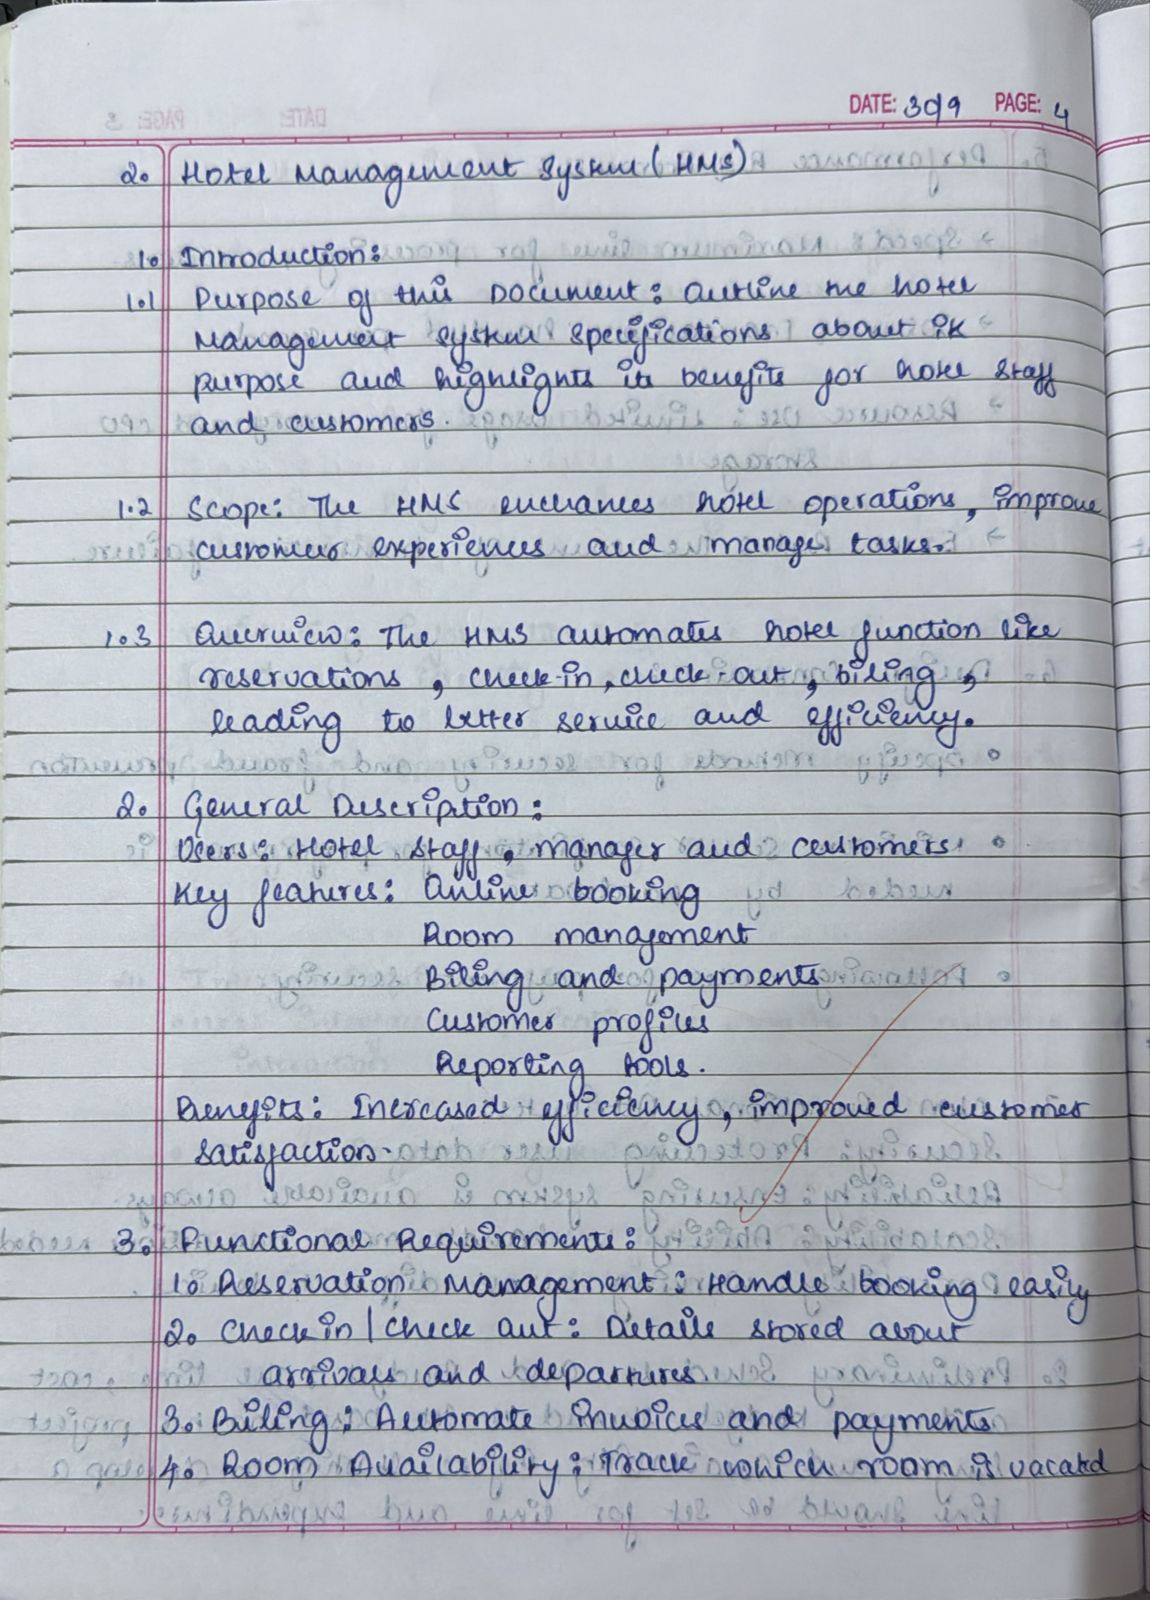 DATE: 30/9 PAGE: 4
2. Hotel Management System (HMS)
1. Introduction:
1.1 Purpose of this Document: Outline the hotel
Management System specifications about its
purpose and highlights its benefits for hotel staff
and customers.
1.2 Scope: The HMS enchances hotel operations, improve
customer experiences and manage tasks.
1.3 Overview: The HMS automates hotel function like
reservations, check-in, check-out, biling,
leading to better service and efficiency.
2. General Description:
Users: Hotel staff, manager and customers.
Key features: Online booking
Room management
Biling and payments
Customer profiles
Reporting tools.
Benefits: Increased efficiency, improved customer
satisfaction.
3. Functional Requirements:
1. Reservation Management: Handle booking easily
2. Check in/Check out: Details stored about
arrivals and departures
3. Biling: Automate invoices and payments
4. Room Availability: Track which room is vacated